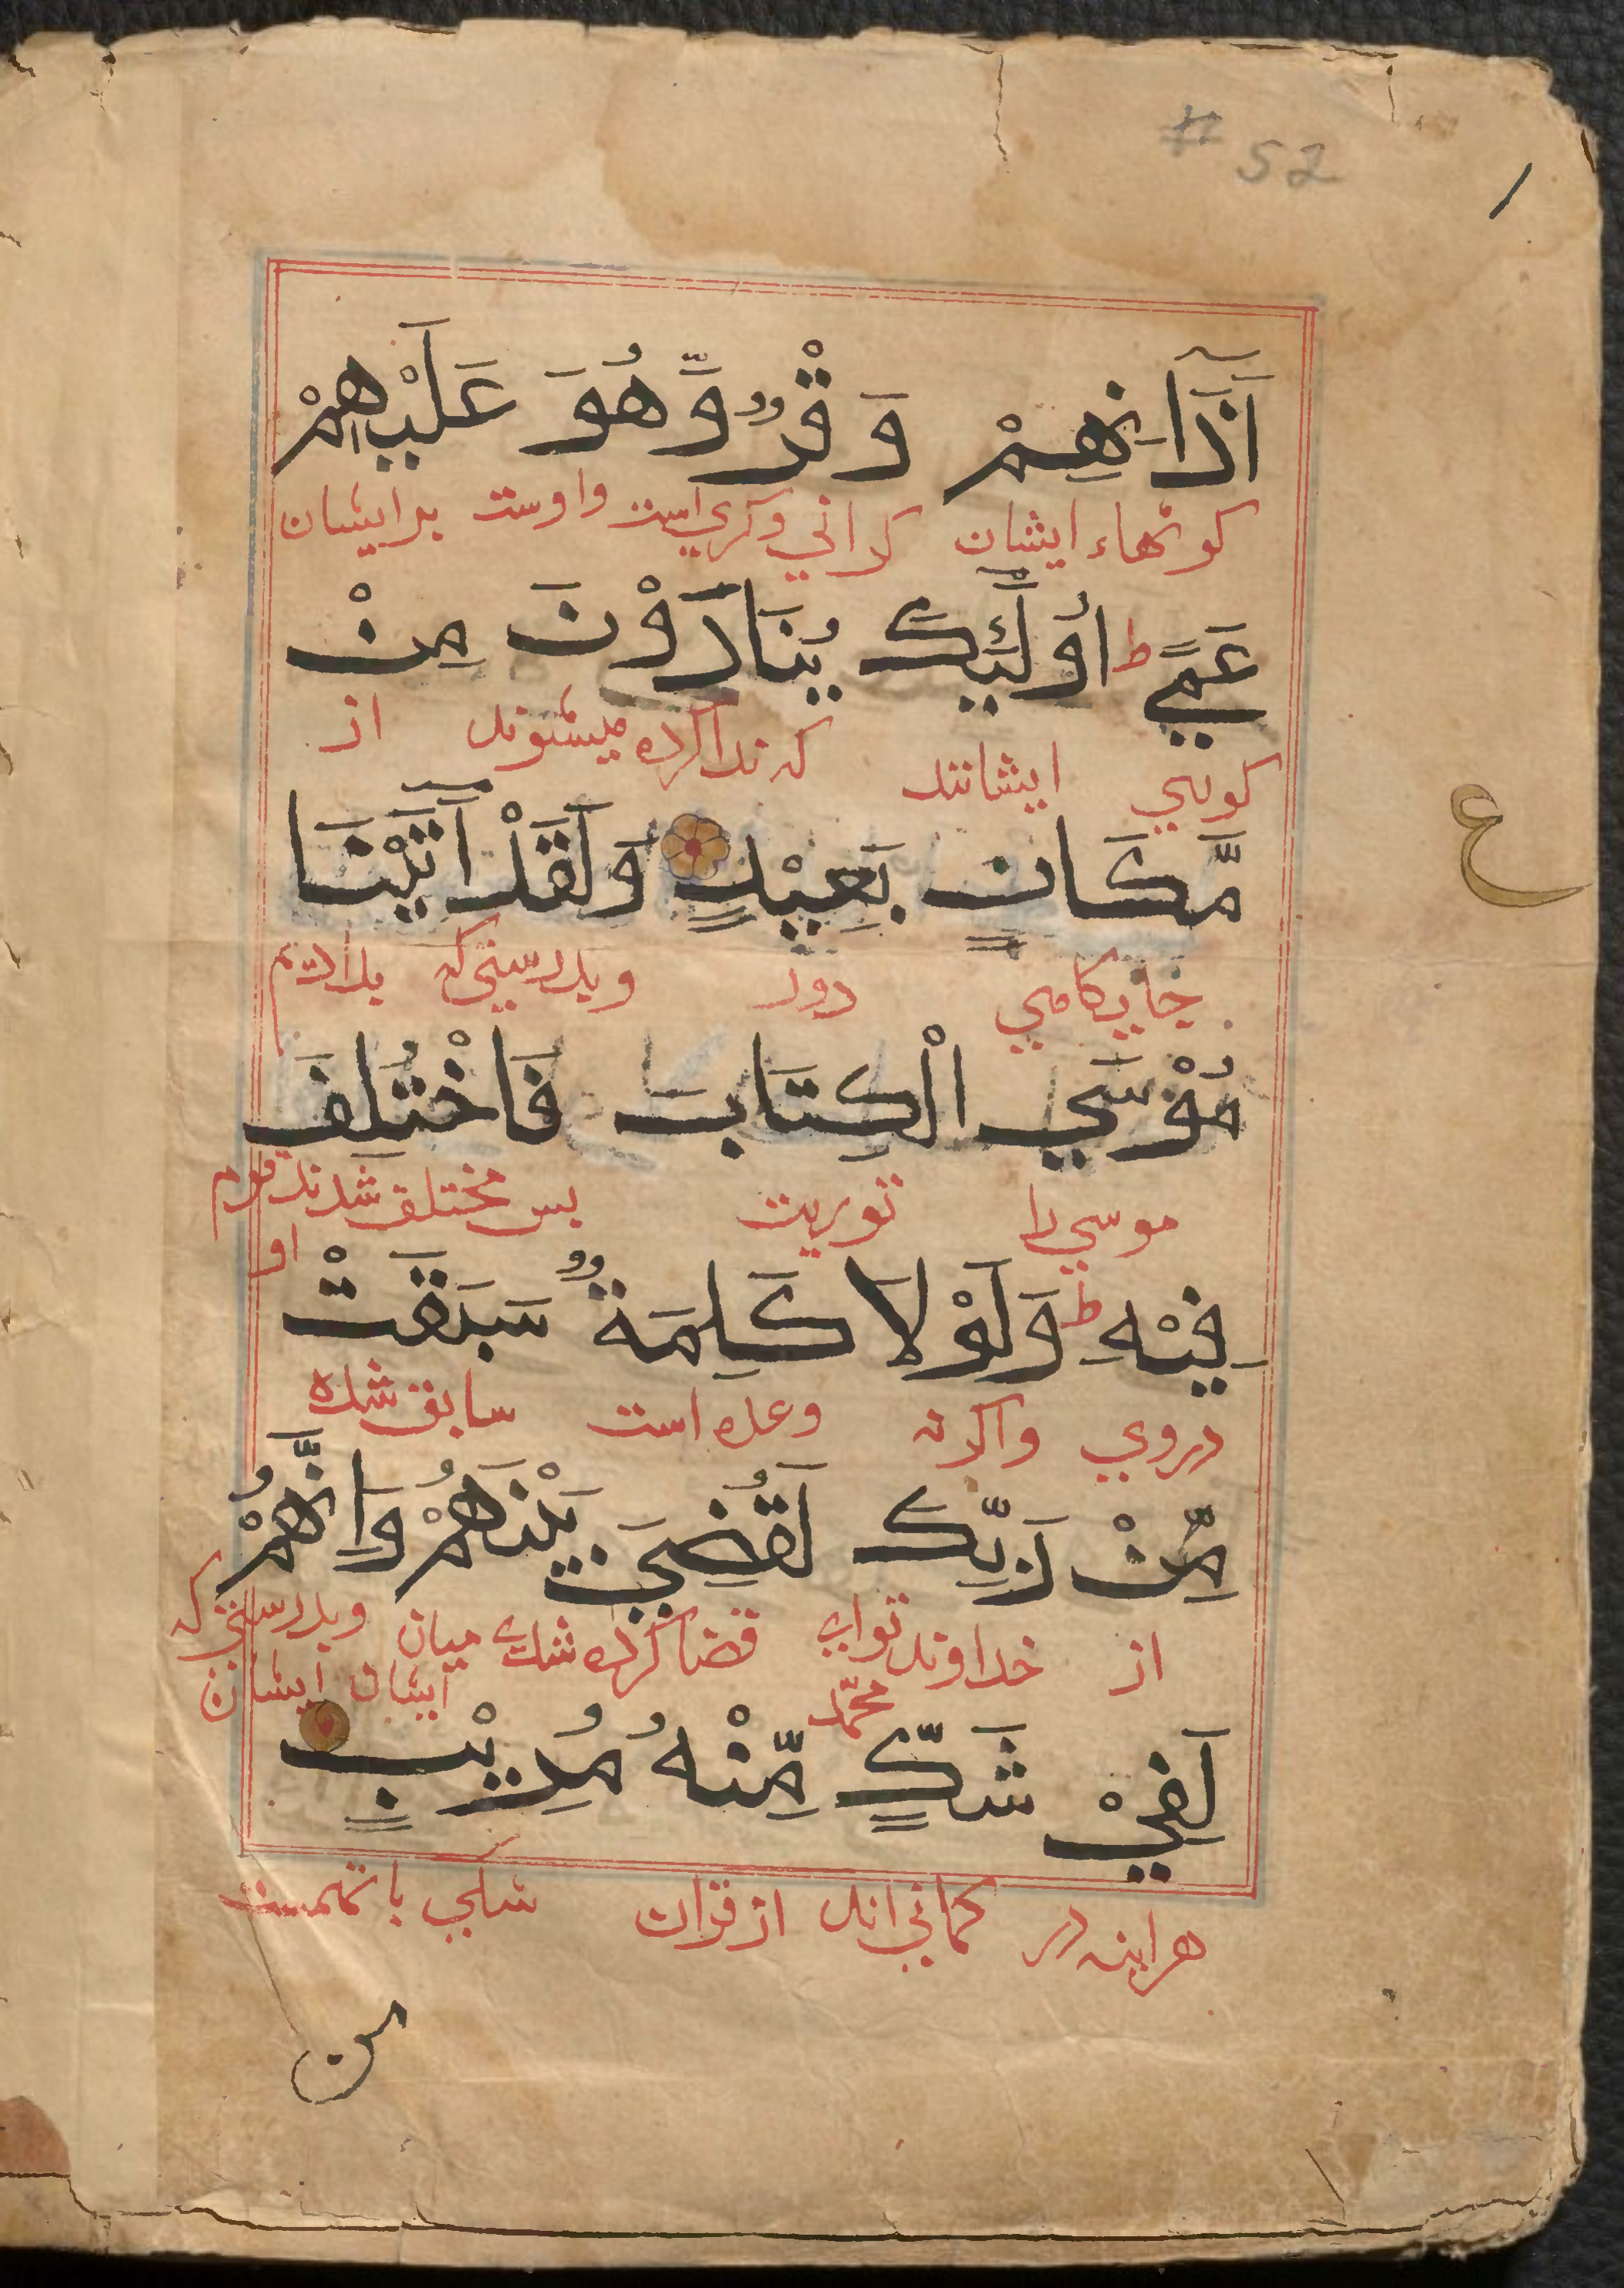 # 52
۱
اَذَانِهِمْ وَقْرٌ وَّهُوَ عَلَيْهِمْ
كوشهاء ايشان كراني وكري است واوست برايشان
عَمًي ط اُولٰٓئِكَ يُنَادَوْنَ مِنْ
كوري ايشانند كه ندا كرده ميشوند از
مَّكَانٍ بَعِيْدٍ وَلَقَدْ اٰتَيْنَا
ع
جايكامي دور وبدرستي كه بداديم
مُوْسَي الْكِتَابَ فَاخْتُلِفَ
موسي را توريت بس مختلف شدند قوم او
فِيْهِ ط وَلَوْلَا كَلِمَةٌ سَبَقَتْ
دروي واكرنه وعده است سابق شده
مِّنْ رَبِّكَ لَقُضِيَ بَيْنَهُمْ وَاِنَّهُمْ
از خداوند تواي محمّد قضا كرده شدي ميان ايشان وبدرستي كه ايشان
لَفِيْ شَكٍّ مِّنْهُ مُرِيْبٍ
هراينه در كماني اند از قران شكي با تهمت
من